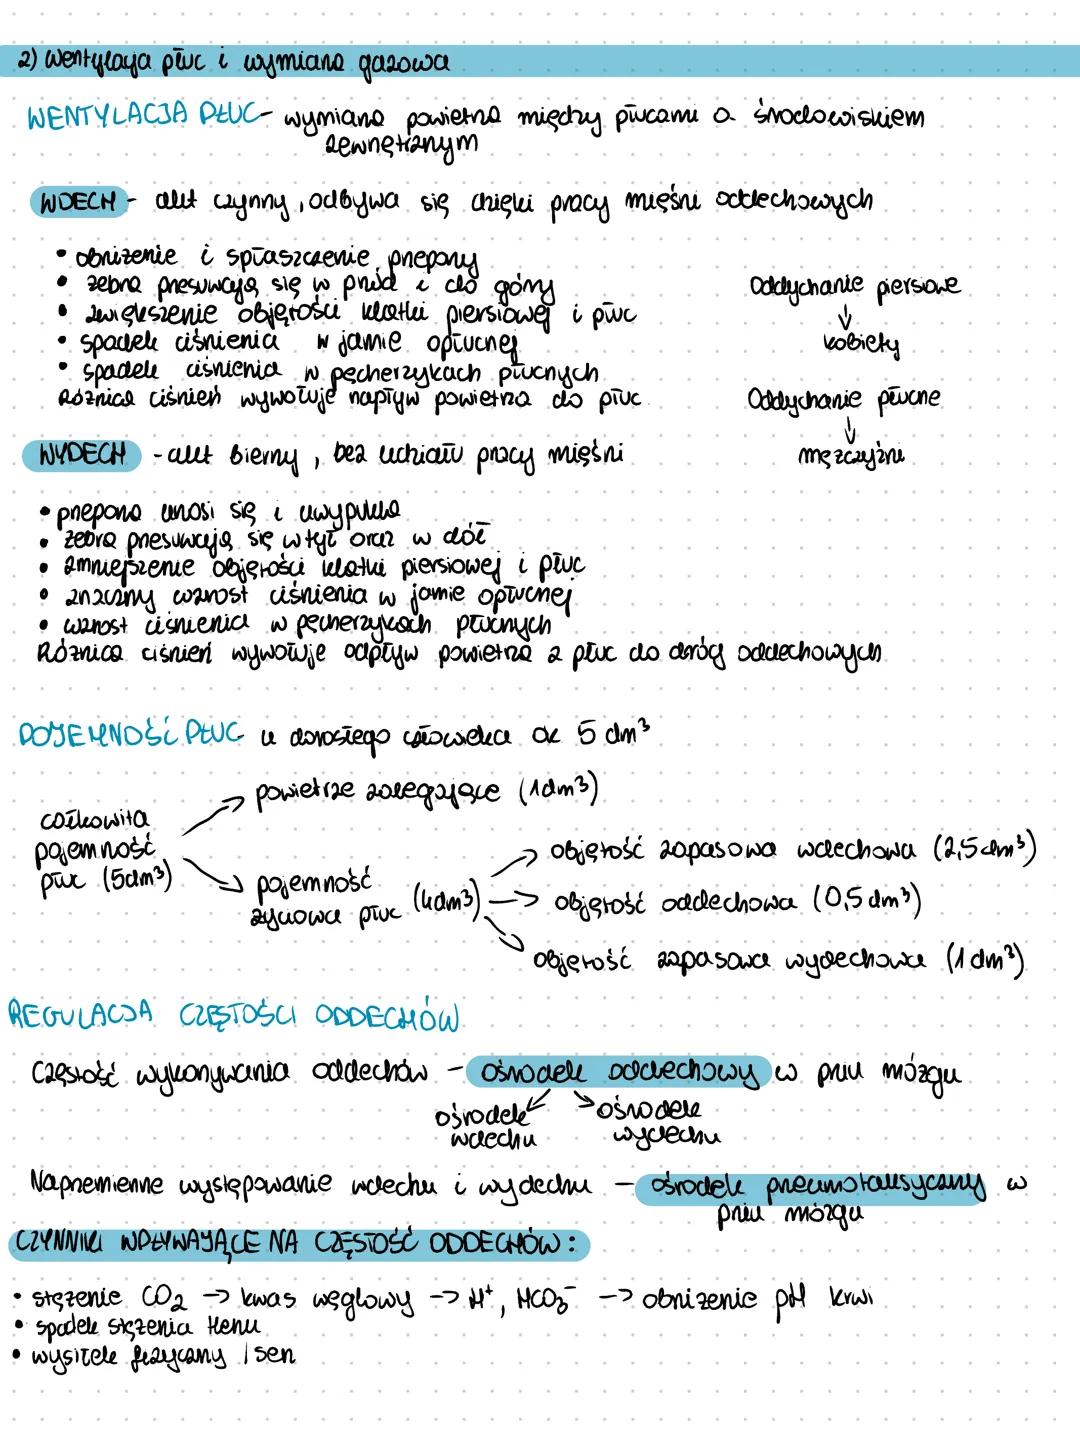 2) Wentylacja płuc i wymiana gazowa
WENTYLACJA PŁUC - wymiana powietrza między płucami a środowiskiem
zewnętrznym
WDECH - akt czynny, odbywa się dzięki pracy mięśni oddechowych
• obniżenie i spłaszczenie przepony
• żebra przesuwają się w przód i do góry
• zwiększenie objętości klatki piersiowej i płuc
• spadek ciśnienia w jamie opłucnej
• spadek ciśnienia w pęcherzykach płucnych
Różnica ciśnień wywołuje napływ powietrza do płuc
Oddychanie piersiowe
↓
kobiety
Oddychanie płucne
↓
mężczyźni
WYDECH - akt bierny, bez udziału pracy mięśni
• przepona unosi się i uwypukla
• żebra przesuwają się w tył oraz w dół
• zmniejszenie objętości klatki piersiowej i płuc
• znaczny wzrost ciśnienia w jamie opłucnej
• wzrost ciśnienia w pęcherzykach płucnych
Różnica ciśnień wywołuje odpływ powietrza z płuc do dróg oddechowych
POJEMNOŚĆ PŁUC u dorosłego człowieka ok 5 dm³
całkowita
pojemność
płuc (5dm³)
→ powietrze zalegające (1dm³)
→ pojemność
życiowa płuc (4dm³)
→ objętość zapasowa wdechowa (2,5 dm³)
→ objętość oddechowa (0,5 dm³)
→ objętość zapasowa wydechowa (1 dm³)
REGULACJA CZĘSTOŚCI ODDECHÓW
Częstość wykonywania oddechów - ośrodek oddechowy w pniu mózgu
ośrodek
wdechu
ośrodek
wydechu
Naprzemienne występowanie wdechu i wydechu - ośrodek pneumotaksyczny w
pniu mózgu
CZYNNIKI WPŁYWAJĄCE NA CZĘSTOŚĆ ODDECHÓW:
• stężenie CO₂ → kwas węglowy → H⁺, HCO₃⁻ → obniżenie pH krwi
• spadek stężenia tlenu
• wysiłek fizyczny / sen